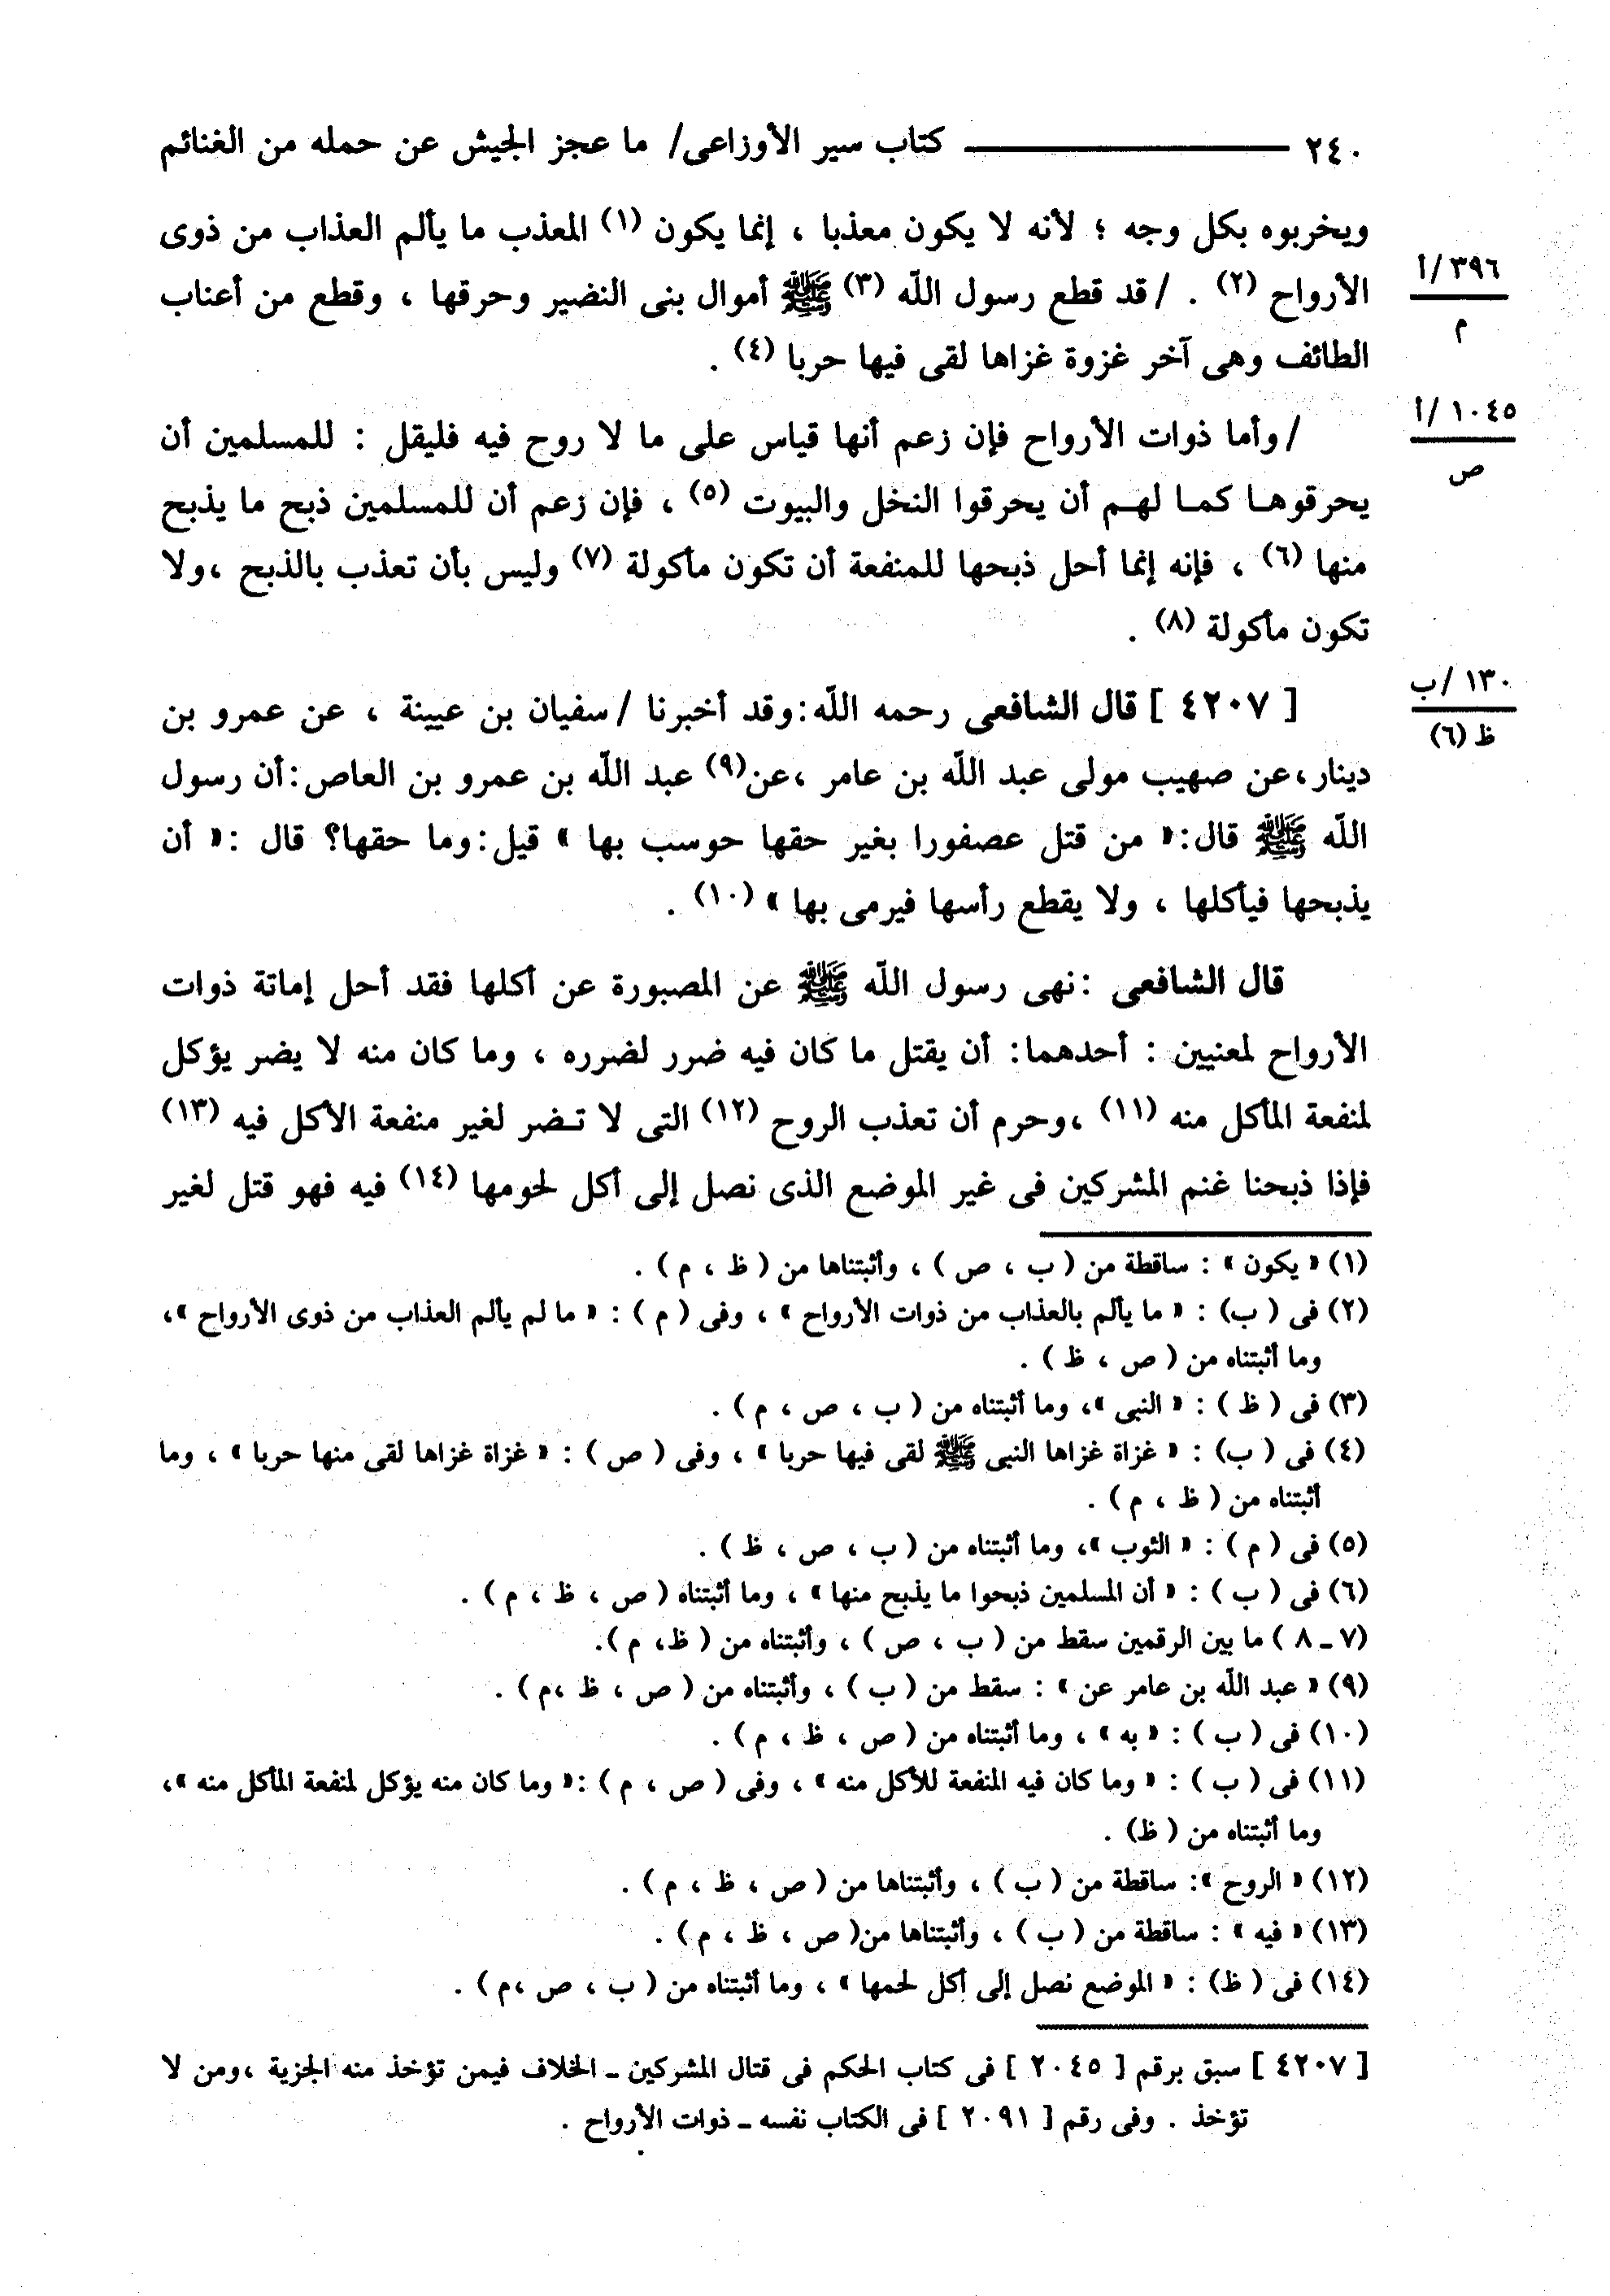 ٢٤٠ ــــــــــــــــ كتاب سير الأوزاعى/ ما عجز الجيش عن حمله من الغنائم
ويخربوه بكل وجه ؛ لأنه لا يكون معذبا ، إنما يكون (١) المعذب ما يألم العذاب من ذوى
٣٩٦/أ
م
الأرواح (٢) . /قد قطع رسول الله (٣) ﷺ أموال بنى النضير وحرقها ، وقطع من أعناب
الطائف وهى آخر غزوة غزاها لقى فيها حربا (٤) .
١٠٤٥/أ
ص
/وأما ذوات الأرواح فإن زعم أنها قياس على ما لا روح فيه فليقل : للمسلمين أن
يحرقوها كما لهم أن يحرقوا النخل والبيوت (٥) ، فإن زعم أن للمسلمين ذبح ما يذبح
منها (٦) ، فإنه إنما أحل ذبحها للمنفعة أن تكون مأكولة (٧) وليس بأن تعذب بالذبح ،ولا
تكون مأكولة (٨) .
١٣٠/ب
ظ (٦)
[ ٤٢٠٧ ] قال الشافعى رحمه الله:وقد أخبرنا /سفيان بن عيينة ، عن عمرو بن
دينار،عن صهيب مولى عبد الله بن عامر ،عن(٩) عبد الله بن عمرو بن العاص:أن رسول
الله ﷺ قال:« من قتل عصفورا بغير حقها حوسب بها » قيل:وما حقها؟ قال :« أن
يذبحها فيأكلها ، ولا يقطع رأسها فيرمى بها » (١٠) .
قال الشافعى :نهى رسول الله ﷺ عن المصبورة عن أكلها فقد أحل إماتة ذوات
الأرواح لمعنيين : أحدهما: أن يقتل ما كان فيه ضرر لضرره ، وما كان منه لا يضر يؤكل
لمنفعة المأكل منه (١١) ،وحرم أن تعذب الروح (١٢) التى لا تضر لغير منفعة الأكل فيه (١٣)
فإذا ذبحنا غنم المشركين فى غير الموضع الذى نصل إلى أكل لحومها (١٤) فيه فهو قتل لغير
(١) « يكون » : ساقطة من ( ب ، ص ) ، وأثبتناها من ( ظ ، م ) .
(٢) فى ( ب) : « ما يألم بالعذاب من ذوات الأرواح » ، وفى ( م ) : « ما لم يألم العذاب من ذوى الأرواح »،
وما أثبتناه من ( ص ، ظ ) .
(٣) فى ( ظ ) : « النبى »، وما أثبتناه من ( ب ، ص ، م ) .
(٤) فى ( ب) : « غزاة غزاها النبى ﷺ لقى فيها حربا » ، وفى ( ص ) : « غزاة غزاها لقى منها حربا » ، وما
أثبتناه من ( ظ ، م ) .
(٥) فى ( م ) : « الثوب »، وما أثبتناه من ( ب ، ص ، ظ ) .
(٦) فى ( ب ) : « أن المسلمين ذبحوا ما يذبح منها » ، وما أثبتناه ( ص ، ظ ، م ) .
(٧ ـ ٨ ) ما بين الرقمين سقط من ( ب ، ص ) ، وأثبتناه من ( ظ، م ).
(٩) « عبد الله بن عامر عن » : سقط من ( ب ) ، وأثبتناه من ( ص ، ظ ،م ) .
(١٠) فى ( ب ) : « به » ، وما أثبتناه من ( ص ، ظ ، م ) .
(١١) فى ( ب ) : « وما كان فيه المنفعة للأكل منه » ، وفى ( ص ، م ) :« وما كان منه يؤكل لمنفعة المأكل منه »،
وما أثبتناه من ( ظ) .
(١٢) « الروح »: ساقطة من ( ب ) ، وأثبتناها من ( ص ، ظ ، م ) .
(١٣) « فيه » : ساقطة من ( ب ) ، وأثبتناها من( ص ، ظ ، م ) .
(١٤) فى ( ظ) : « الموضع نصل إلى أكل لحمها » ، وما أثبتناه من ( ب ، ص ،م ) .
[ ٤٢٠٧ ] سبق برقم [ ٢٠٤٥ ] فى كتاب الحكم فى قتال المشركين ـ الخلاف فيمن تؤخذ منه الجزية ،ومن لا
تؤخذ . وفى رقم [ ٢٠٩١ ] فى الكتاب نفسه ـ ذوات الأرواح .